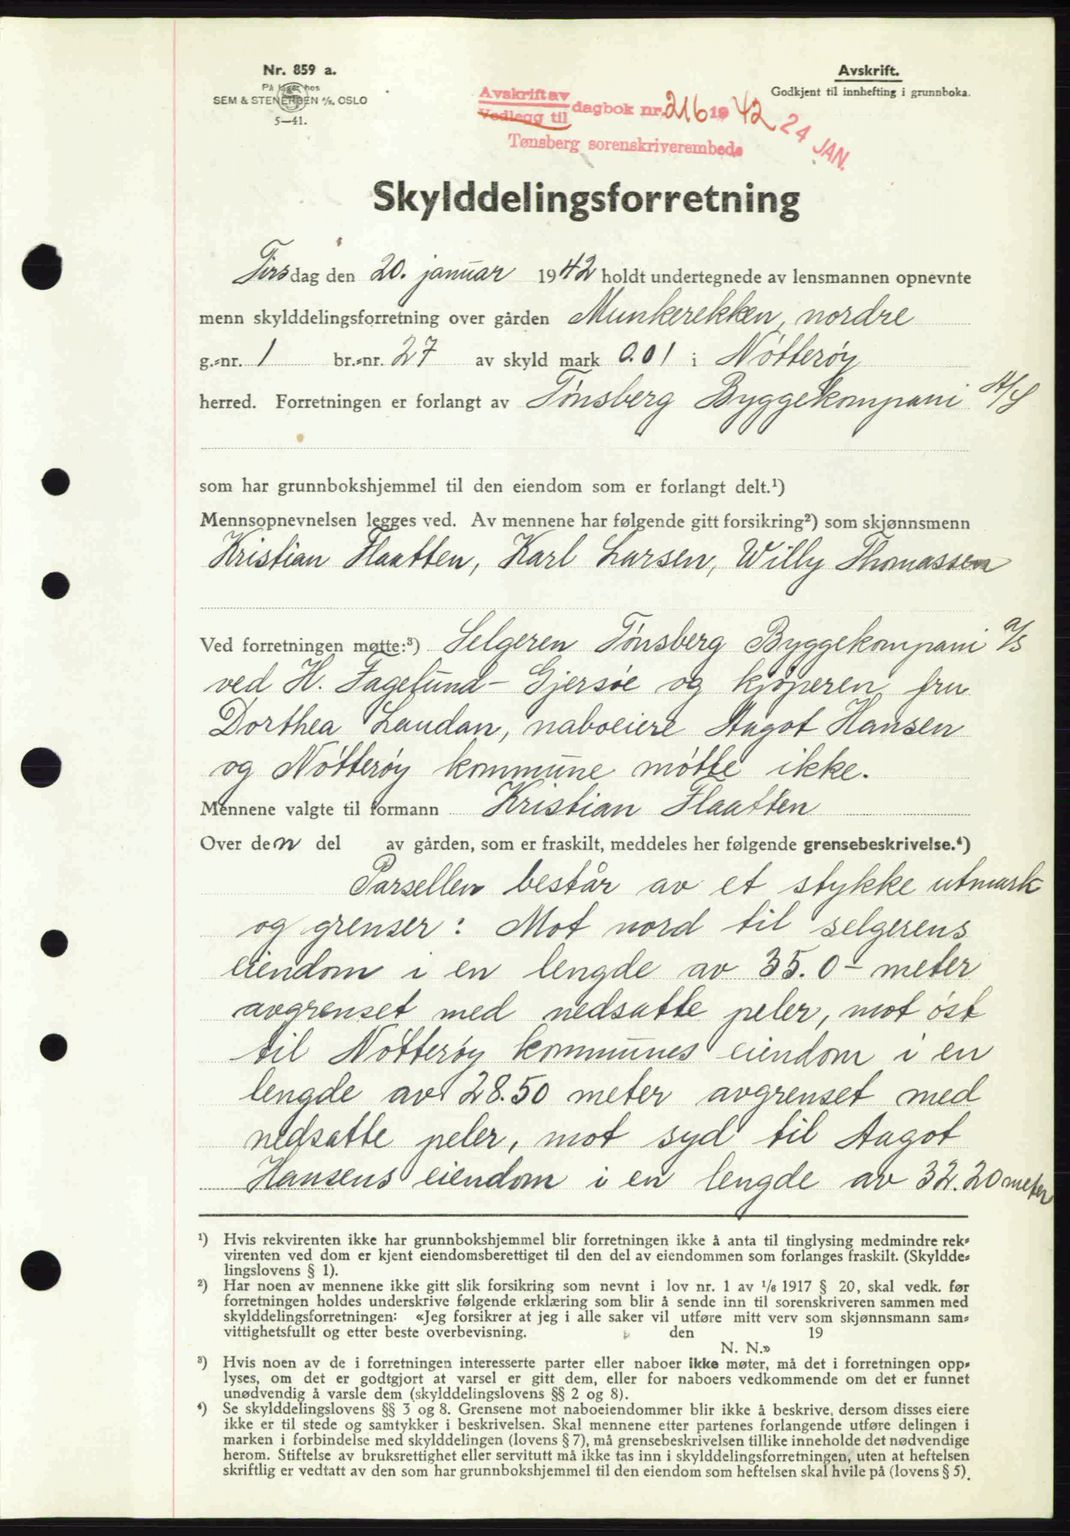 Nr. 859 a.
På lager hos
SEM & STENERSEN A/S, OSLO
5—41.
Avskrift.
Godkjent til innhefting i grunnboka.
Avskrift av
Vedlegg til
dagbok nr. 216 1942
24 JAN.
Tønsberg sorenskriverembede
Skylddelingsforretning
Tirsdag den 20. januar 1942 holdt undertegnede av lensmannen opnevnte
menn skylddelingsforretning over gården Munkerekken, nordre
g.-nr. 1 br.-nr. 27 av skyld mark 0.01 i Nötteröy
herred. Forretningen er forlangt av Tönsberg Byggekompani A/S
som har grunnbokshjemmel til den eiendom som er forlangt delt.¹)
Mennsopnevnelsen legges ved. Av mennene har følgende gitt forsikring²) som skjønnsmenn
Kristian Flaatten, Karl Larsen, Willy Thomassen
Ved forretningen møtte:³) Selgeren Tönsberg Byggekompani a/s
ved H. Fagelund-Gjersöe og kjöperen fru
Dorthea Laudan, naboeiere Aagot Hansen
og Nötteröy kommune mötte ikke.
Mennene valgte til formann Kristian Flaatten
Over den del av gården, som er fraskilt, meddeles her følgende grensebeskrivelse.⁴)
Parsellen består av et stykke utmark
og grenser: Mot nord til selgerens
eiendom i en lengde av 35.0- meter
avgrenset med nedsatte peler, mot öst
til Nötteröy kommunes eiendom i en
lengde av 28.50 meter avgrenset med
nedsatte peler, mot syd til Aagot
Hansens eiendom i en lengde av 32.20 meter
¹) Hvis rekvirenten ikke har grunnbokshjemmel blir forretningen ikke å anta til tinglysing medmindre rek-
virenten ved dom er kjent eiendomsberettiget til den del av eiendommen som forlanges fraskilt. (Skyldde-
lingslovens § 1).
²) Har noen av mennene ikke gitt slik forsikring som nevnt i lov nr. 1 av 1/6 1917 § 20, skal vedk. før
forretningen holdes underskrive følgende erklæring som blir å sende inn til sorenskriveren sammen med
skylddelingsforretningen: «Jeg forsikrer at jeg i alle saker vil utføre mitt verv som skjønnsmann sam-
vittighetsfullt og etter beste overbevisning. den 19
N. N.»
³) Hvis noen av de i forretningen interesserte parter eller naboer ikke møter, må det i forretningen opp-
lyses, om det er godtgjort at varsel er gitt dem, eller for naboers vedkommende om det er funnet
unødvendig å varsle dem (skylddelingslovens §§ 2 og 8).
⁴) Se skylddelingslovens §§ 3 og 8. Grensene mot naboeiendommer blir ikke å beskrive, dersom disses eiere
ikke er til stede og samtykker i beskrivelsen. Skal mennene etter partenes forlangende utføre delingen i
marken i forbindelse med skylddelingen (lovens § 7), må grensebeskrivelsen tillike inneholde det nødvendige
herom. Stiftelse av bruksrettighet eller servitutt må ikke tas inn i skylddelingsforretningen, uten at heftelsen
skriftlig er vedtatt av den som har grunnbokshjemmel til den eiendom som heftelsen skal hvile på (lovens § 5).